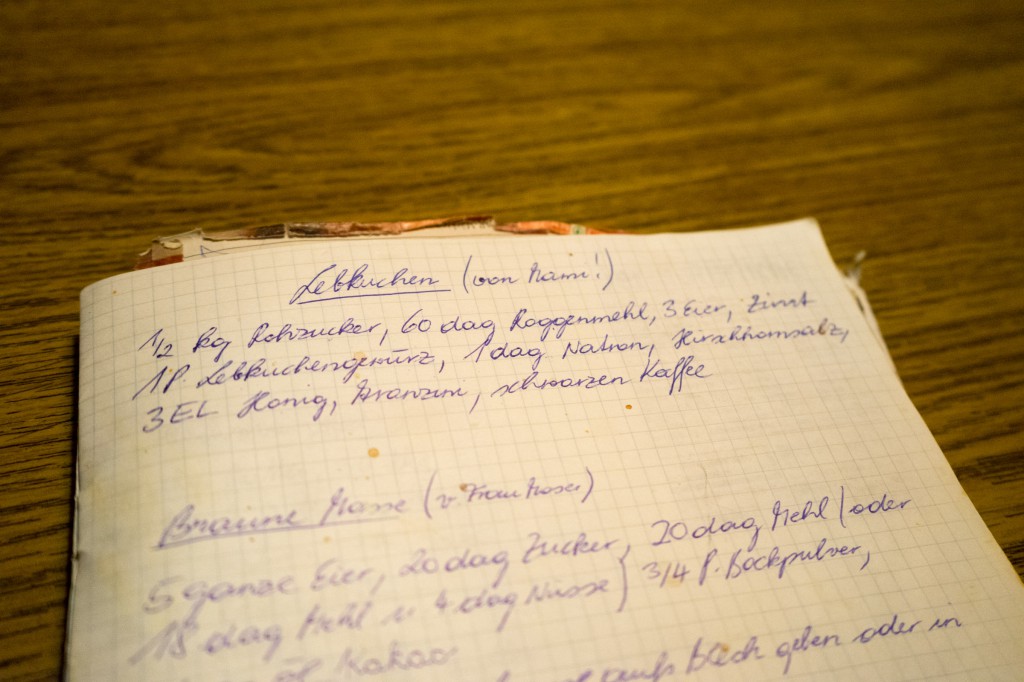 Lebkuchen (von Mami!)
1/2 kg Rohzucker, 60 dag Roggenmehl, 3 Eier, Zimt
1 P. Lebkuchengewürz, 1 dag Natron, Hirschhornsalz,
3 EL Honig, Aranzini, schwarzen Kaffee
Braune Masse (v. Frau Moser)
5 ganze Eier, 20 dag Zucker, 20 dag Mehl (oder
15 dag Mehl u 4 dag Nüsse) 3/4 P. Backpulver,
Kakao
aufs Blech geben oder in